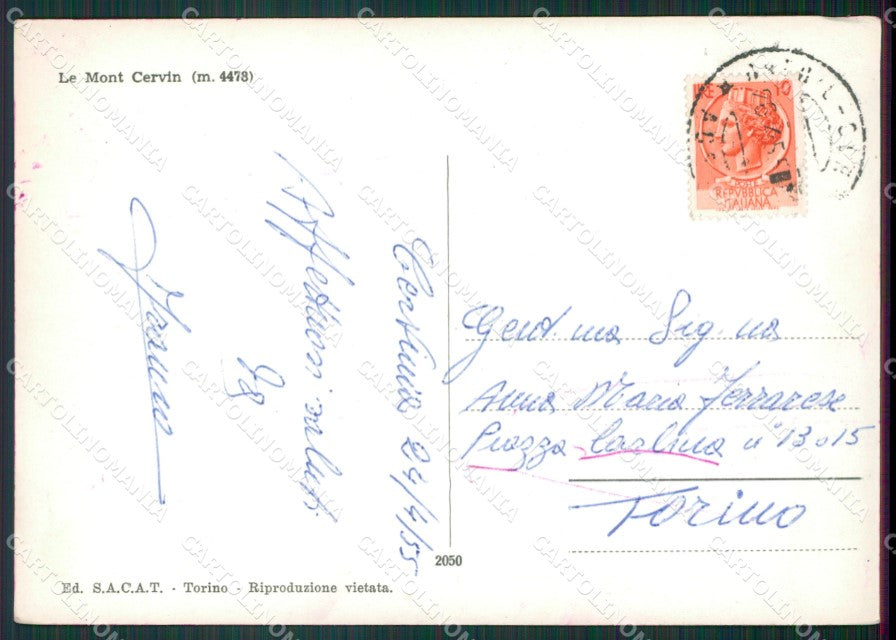 Le Mont Cervin (m. 4478)
Cervinia 24/4/55
Affettuosi saluti
Gent.ma Sig.na
Anna Maria Ferrarese
Piazza n° 13 o 15
Torino
LIRE 10
POSTE
REPVBBLICA
ITALIANA
2050
Ed. S.A.C.A.T. - Torino - Riproduzione vietata.
CARTOLINOMANIA